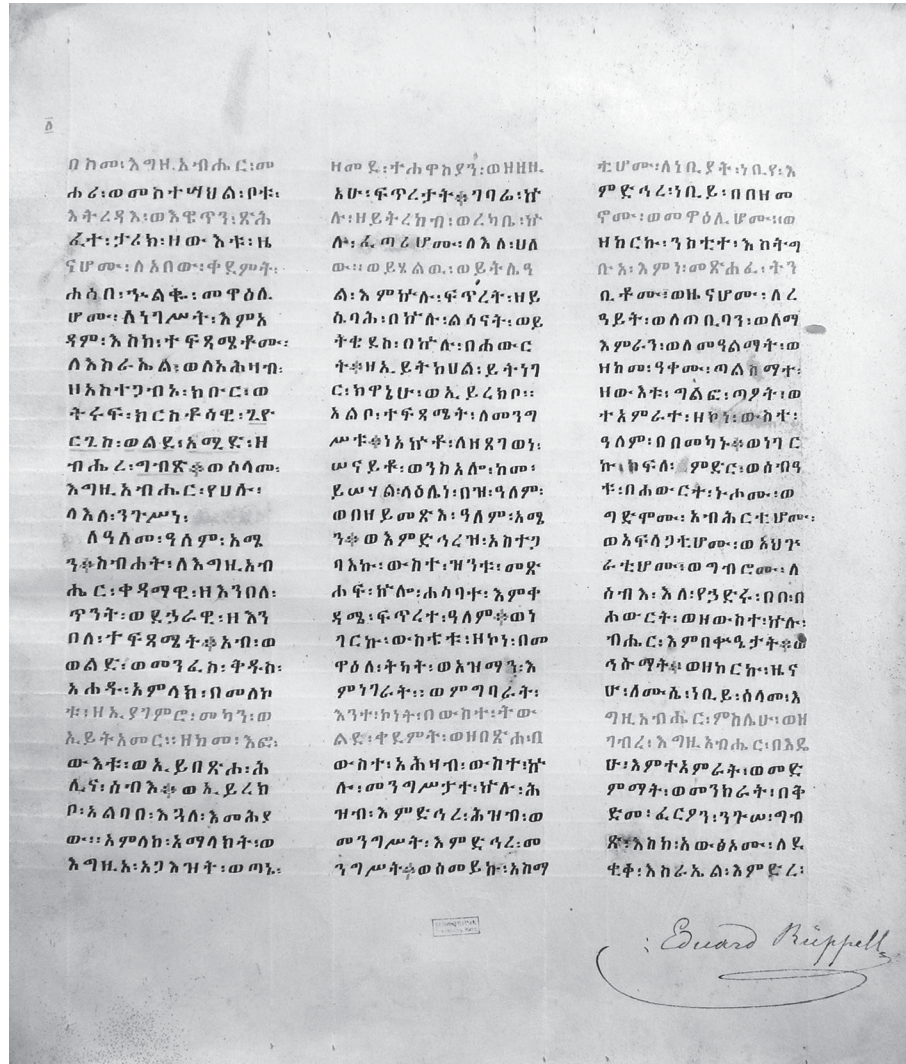 ፩
በከመ፡እግዚአብሔር፡መ
ሐሪ፡ወመስተሣህል፡ቦቱ፡
እትረዳእ፡ወእዌጥን፡ጽሕ
ፈተ፡ታሪክ፡ዘውእቱ፡ዜ
ናሆሙ፡ለአበው፡ቀደምት፡
ሐሰበ፡ኍልቁ፡መዋዕሊ
ሆሙ፡ለነገሥት፡እምአ
ዳም፡እስከ፡ተፍጻሜቶሙ፡
ለእስራኤል፡ወለአሕዛብ፡
ዘአስተጋብአ፡ከቡር፡ወ
ትሩፍ፡ክርስቶሳዊ፡ጊዮ
ርጊስ፡ወልደ፡አሚድ፡ዘ
ብሔረ፡ግብጽ፨ወሰላመ፡
እግዚአብሔር፡የሀሉ፡
ላእለ፡ንጉሥነ፡
ለዓለመ፡ዓለም፡አሜ
ን፨ስብሐት፡ለእግዚአብ
ሔር፡ቀዳማዊ፡ዘእንበለ፡
ጥንት፡ወደኃራዊ፡ዘእን
በለ፡ተፍጻሜት፨አብ፡ወ
ወልድ፡ወመንፈስ፡ቅዱስ፡
አሐዱ፡አምላክ፡በመለኮ
ቱ፡ዘኢያገምሮ፡መካን፡ወ
ኢይትአመር፡፡ዘከመ፡እፎ፡
ውእቱ፡ወኢይበጽሐ፡ሕ
ሊና፡ሰብእ፨ወኢይረክ
ቦ፡አልባበ፡እጓለ፡እመሕያ
ው፡፡አምላከ፡አማልክት፡ወ
እግዚአ፡አጋእዝት፡ወጣኔ፡
ዘመደ፡ተሐዋስያን፡ወዘዘዚ
አሁ፡ፍጥረታት፨ገባሬ፡ኵ
ሉ፡ዘይትረከብ፡ወረካቤ፡ኵ
ሉ፡ፈጣሪሆሙ፡ለእለ፡ሀለ
ው፡፡ወይሄልዉ፡ወይትሌዓ
ል፡እምኵሉ፡ፍጥረት፡ዘይ
ሴባሕ፡በኵሉ፡ልሳናት፡ወይ
ትቄደስ፡በኵሉ፡በሐውር
ት፨ዘኢይትከሀል፡ይትነገ
ር፡ከዋኔሁ፡ወኢይረክቦ፡፡
አልቦ፡ተፍጻሜት፡ለመንግ
ሥቱ፨ነአኵቶ፡ለዘጸገወነ፡
ሠናይቶ፡ወንስእሎ፡ከመ፡
ይሠሃል፡ላዕሌነ፡በዝ፡ዓለም፡
ወበዘይመጽእ፡ዓለም፡አሜ
ን፨ወእምድኅረዝ፡አስተጋ
ባእኩ፡ውስተ፡ዝንቱ፡መጽ
ሐፍ፡ኵሎ፡ሐሳባተ፡እምቀ
ዳሜ፡ፍጥረተ፡ዓለም፨ወነ
ገርኩ፡ውስቴቱ፡ዘኮነ፡በመ
ዋዕለ፡ትካት፡ወአዝማን፡እ
ምነገራት፡፡ወምግባራት፡
እንተ፡ኮነት፡በውስተ፡ትው
ልድ፡ቀደምት፡ወዘበጽሐብ
ውስተ፡አሕዛብ፡ውስተ፡ኵ
ሉ፡መንግሥታተ፡ኵሉ፡ሕ
ዝብ፡እምድኅረ፡ሕዝብ፡ወ
መንግሥት፡እምድኅረ፡መ
ንግሥት፨ወሰመይኩ፡አስማ
ቲሆሙ፡ለነቢያት፡ነቢየ፡እ
ምድኅረ፡ነቢይ፡በበዘመ
ኖሙ፡ወመዋዕሊሆሙ፡፡ወ
ዘከርኩ፡ንስቲተ፡እስትግ
ቡአ፡እምነ፡መጽሐፈ፡ትን
ቢቶሙ፡ወዜናሆሙ፡ለረ
ዓይት፡ወለጠቢባን፡ወለማ
እምራን፡ወለመዓልማት፡ወ
ዘከመ፡ዓቀሙ፡ጣልስማተ፡
ዘውእቱ፡ግልፎ፡ጣዖት፡ወ
ተአምራተ፡ዘኮነ፡ውስቴ፡
ዓለም፡በበመካኑ፨ወነገር
ኩ፡ክፍለ፡ምድር፡ወሰብዓ
ቱ፡በሐውርት፡ኑሖሙ፡ወ
ግድሞሙ፡አብሕርቲሆሙ፡
ወአፍላጋቲሆሙ፡ወአህጉ
ራቲሆሙ፡ወግብሮሙ፡ለ
ሰብእ፡እለ፡የኃድሩ፡በበ፡በ
ሐውርት፡ወዘውስተ፡ኵሉ፡
ብሔር፡እምበቍዔታት፨ወ
ኅሱማት፨ወዘከርኩ፡ዜና
ሁ፡ለሙሴ፡ነቢይ፡ሰላመ፡እ
ግዚአብሔር፡ምስሌሁ፡ወዘ
ገብረ፡እግዚአብሔር፡በእዴ
ሁ፡እምተአምራት፡ወመድ
ምማት፡ወመንክራት፡በቅ
ድመ፡ፈርዖን፡ንጉሠ፡ግብ
ጽ፡እስከ፡አውፅኦሙ፡ለደ
ቂቀ፡እስራኤል፡እምድረ፡
Eduard Rüppell